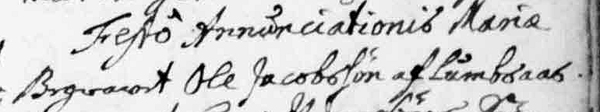 Festo Annunciationis Mariæ
Begravet Ole Jacobssøn af Lumbsaas.